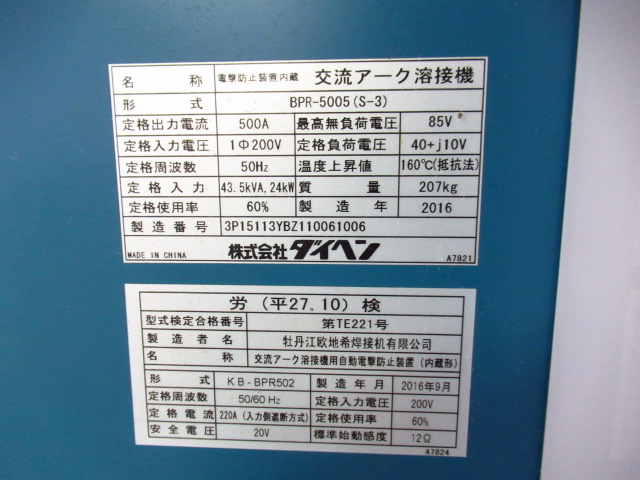 名称 電撃防止装置内蔵 交流アーク溶接機
形式 BPR-5005(S-3)
定格出力電流 500A 最高無負荷電圧 85V
定格入力電圧 1Φ200V 定格負荷電圧 40+j10V
定格周波数 50Hz 温度上昇値 160℃(抵抗法)
定格入力 43.5kVA,24kW 質量 207kg
定格使用率 60% 製造年 2016
製造番号 3P15113YBZ110061006
MADE IN CHINA 株式会社ダイヘン A7821
労(平27.10)検
型式検定合格番号 第TE221号
製造者名 牡丹江欧地希焊接机有限公司
名称 交流アーク溶接機用自動電撃防止装置(内蔵形)
形式 KB-BPR502 製造年月 2016年9月
定格周波数 50/60 Hz 定格入力電圧 200V
定格電流 220A(入力側遮断方式) 定格使用率 60%
安全電圧 20V 標準始動感度 12Ω
A7824